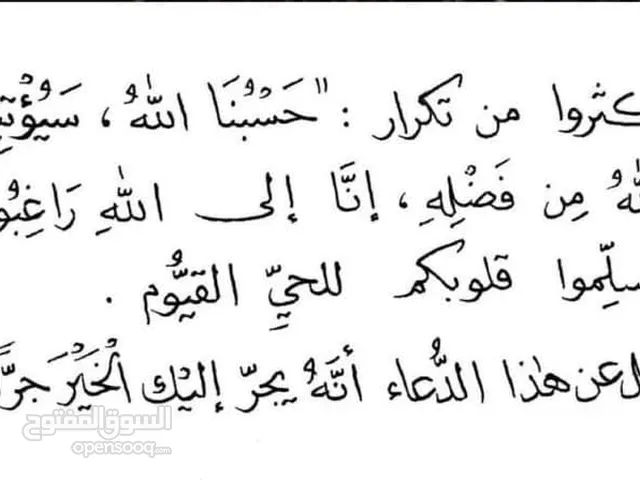 كثروا من تكرار : "حَسْبُنَا اللهُ ، سَيُؤْتِي
للهُ مِن فَضْلِهِ ، إنَّا إلى اللهِ رَاغِبُو
سلِّموا قلوبكم للحيِّ القيُّوم .
ل عن هٰذا الدُّعاء أنَّهُ يجرّ إليْك الْخَيْرَ جرَّ
السوق المفتوح
opensooq.com